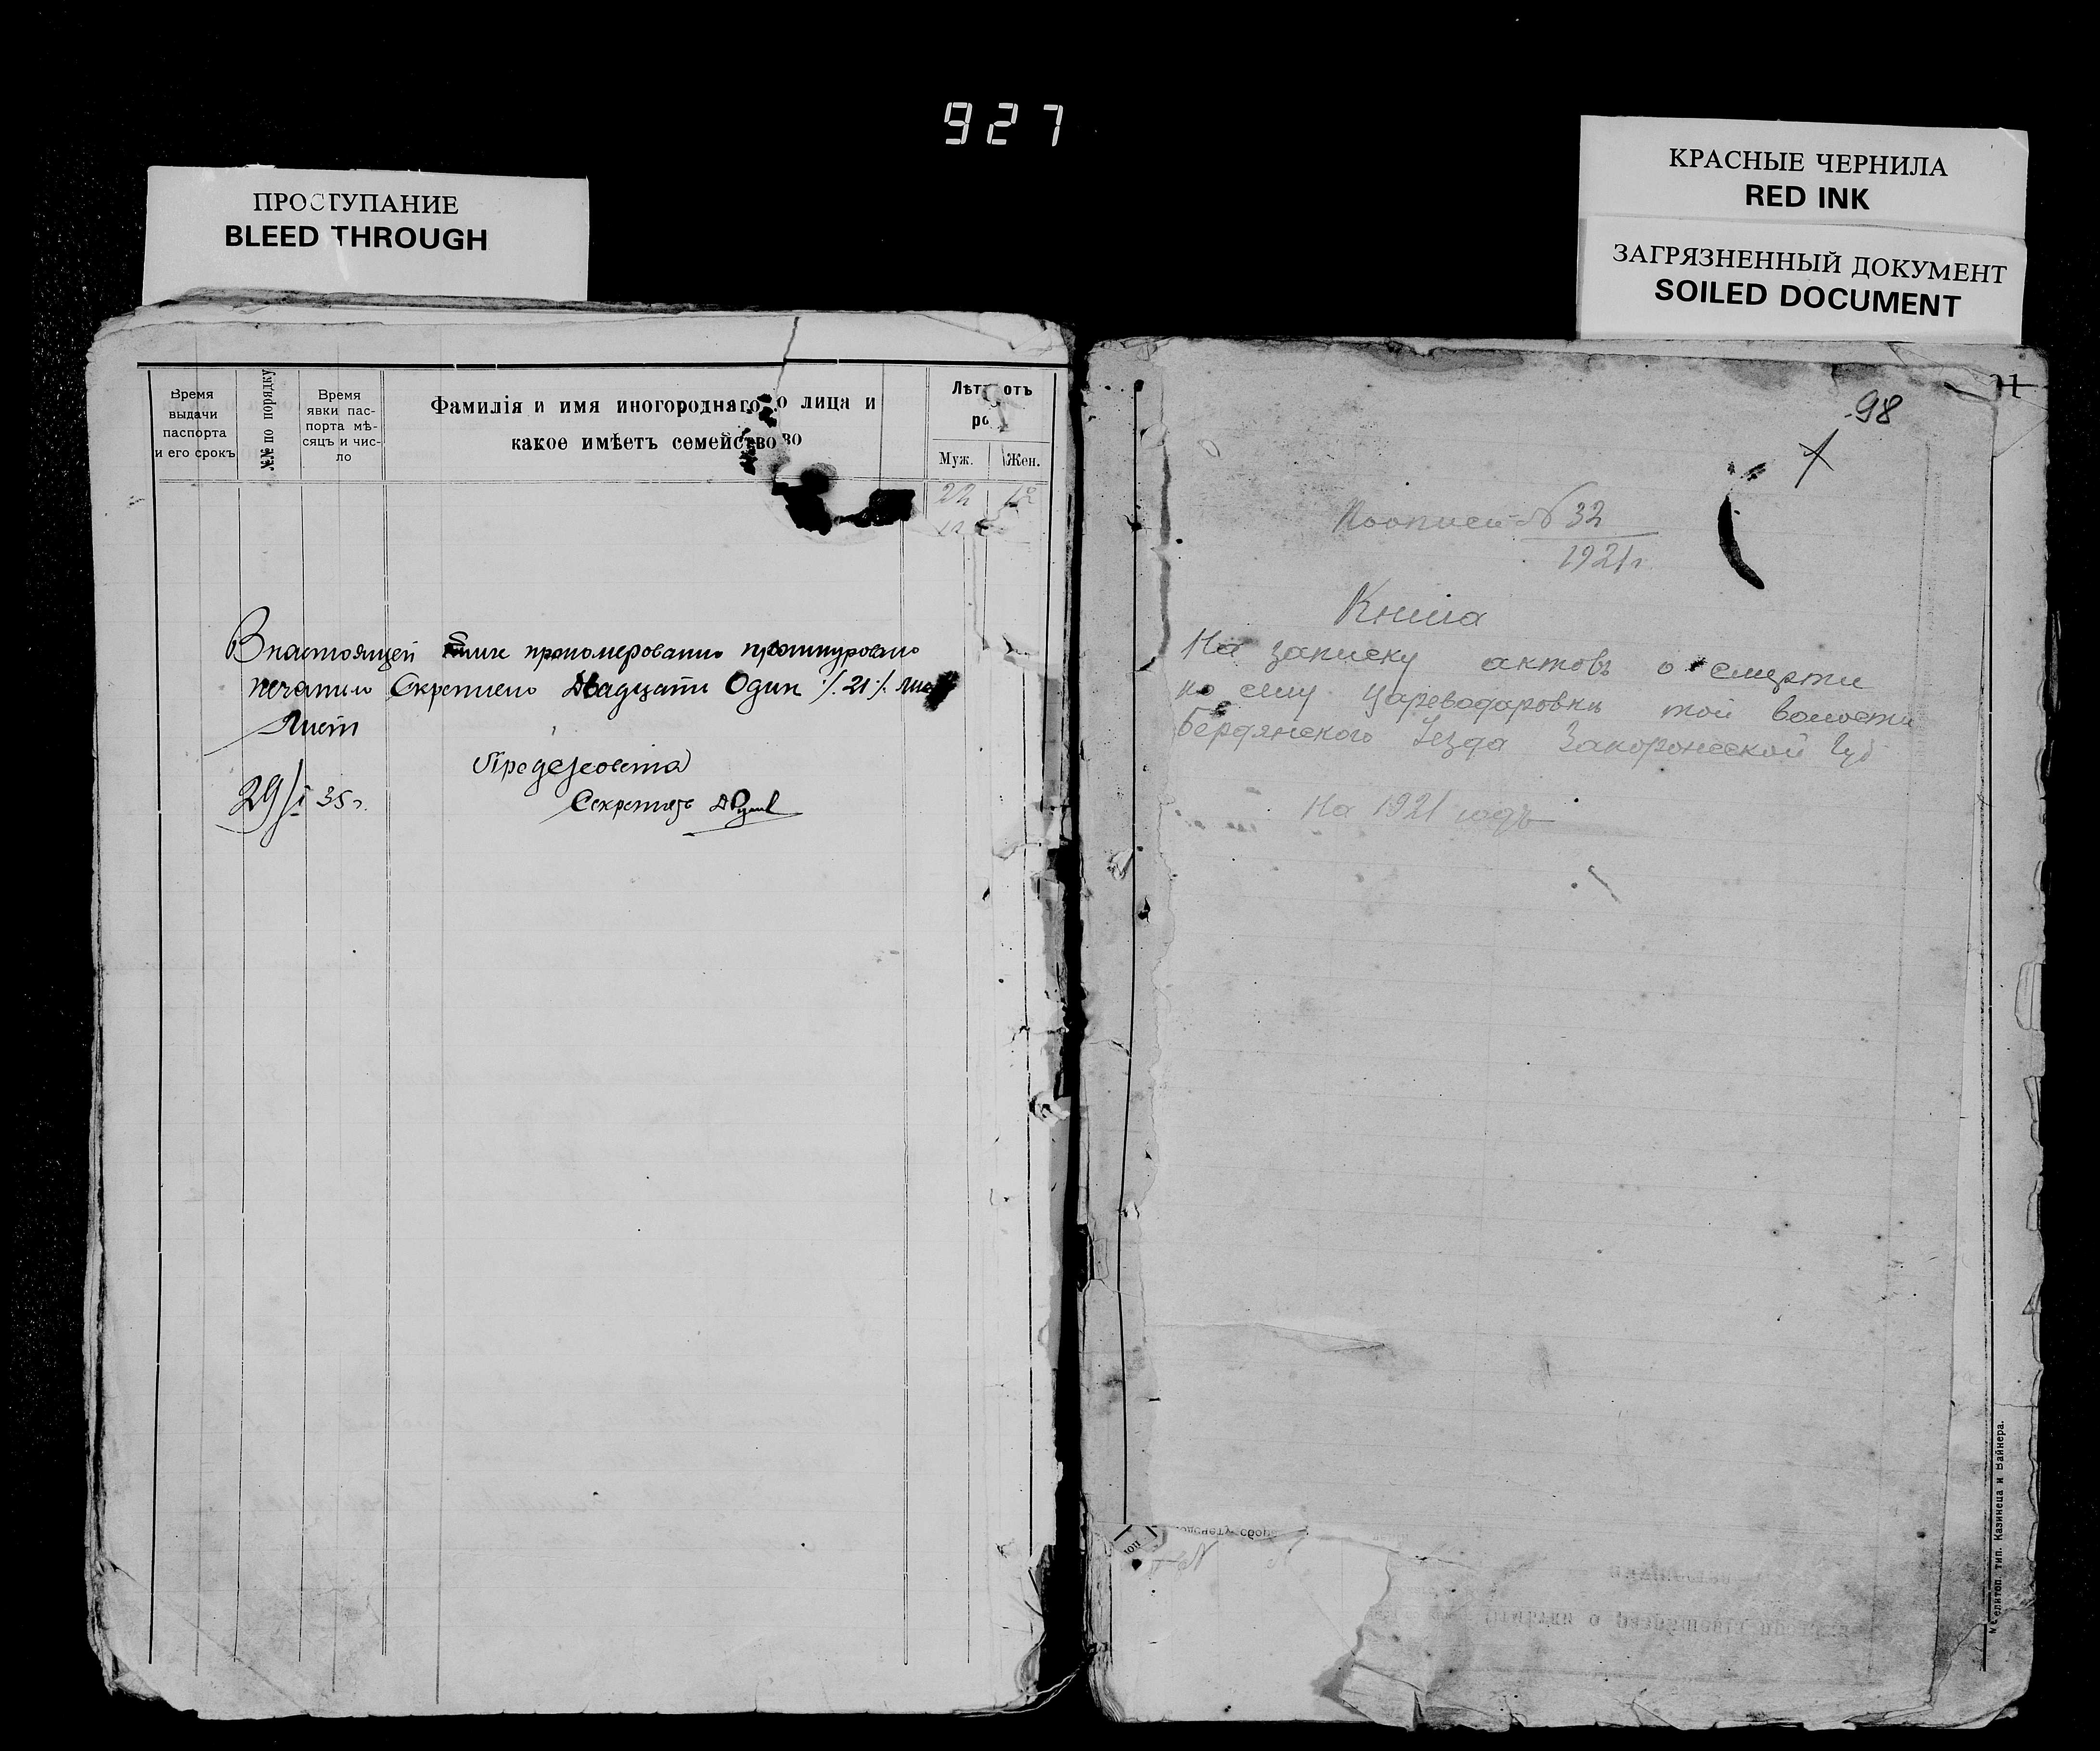 927
ПРОСТУПАНИЕ
BLEED THROUGH
КРАСНЫЕ ЧЕРНИЛА
RED INK
ЗАГРЯЗНЕННЫЙ ДОКУМЕНТ
SOILED DOCUMENT
Время выдачи паспорта и его срокъ
№№ по порядку
Время явки пас-порта мѣ-сяцъ и чис-ло
Фамилія и имя иногороднаго лица и
какое имѣетъ семейство
Лѣтъ отъ
Муж.
Жен.
22
В настоящей прономеровано прошнуровано
печатью Скреплено Двадцать Один /. 21 /.
Лист
29/I 35 г.
Секретарь
98
№ 32
1921 г.
Книга
На записку актовъ о смерти
по селу Цареводаровки той волости
Бердянского Уезда Запорожской Губ
На 1921 годъ
Мелитоп. тип. Казинеца и Вайнера.